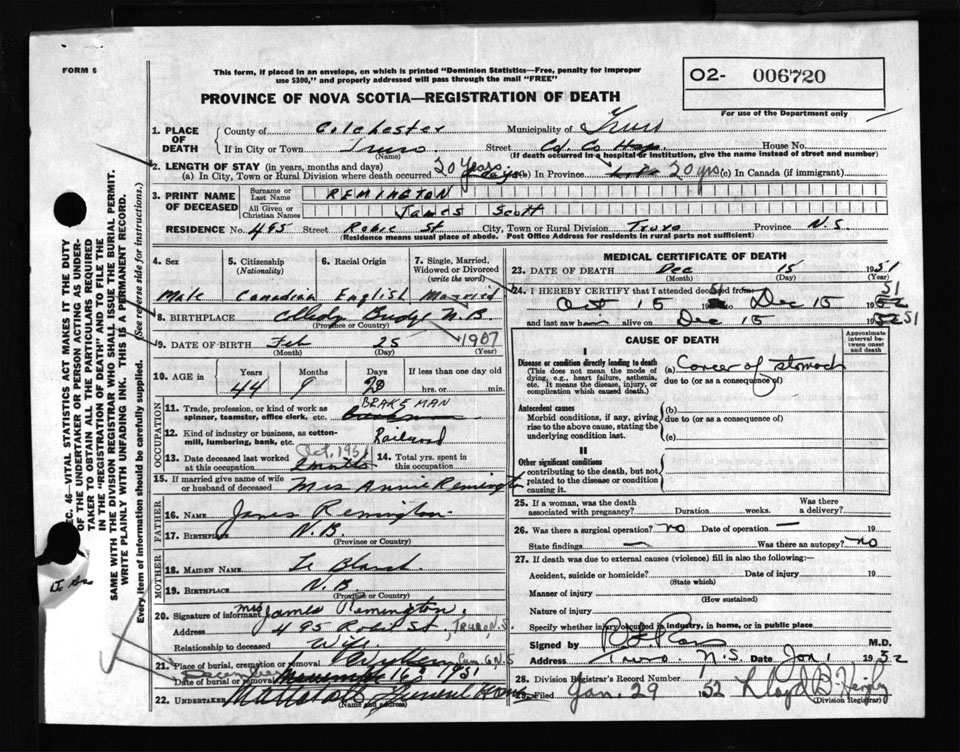 FORM 6
This form, if placed in an envelope, on which is printed "Dominion Statistics—Free, penalty for improper
use $300," and properly addressed will pass through the mail "FREE"
O2- 006720
PROVINCE OF NOVA SCOTIA—REGISTRATION OF DEATH
For use of the Department only
1. PLACE OF DEATH
County of Colchester Municipality of Truro
If in City or Town Truro Street Col. Co Hosp. House No.
(If death occurred in a hospital or institution, give the name instead of street and number)
2. LENGTH OF STAY (in years, months and days)
(a) In City, Town or Rural Division where death occurred 20 Years (b) In Province 20 yrs (c) In Canada (if immigrant)
3. PRINT NAME OF DECEASED
Surname or Last Name REMINGTON
All Given or Christian Names James Scott
RESIDENCE No. 495 Street Robie St City, Town or Rural Division Truro Province N.S.
(Residence means usual place of abode. Post Office Address for residents in rural parts not sufficient)
4. Sex
Male
5. Citizenship (Nationality)
Canadian
6. Racial Origin
English
7. Single, Married, Widowed or Divorced (write the word)
Married
8. BIRTHPLACE Bridge N.B.
(Province or Country)
9. DATE OF BIRTH Feb 25 1907
(Month) (Day) (Year)
10. AGE in Years Months Days If less than one day old
44 9 20 hrs. or min.
OCCUPATION
11. Trade, profession, or kind of work as spinner, teamster, office clerk, etc. BRAKEMAN
12. Kind of industry or business, as cotton-mill, lumbering, bank, etc. Railroad
13. Date deceased last worked at this occupation Oct, 1951 2 months
14. Total yrs. spent in this occupation
15. If married give name of wife or husband of deceased Mrs Annie Remington
FATHER
16. NAME James Remington
17. BIRTHPLACE N.B.
(Province or Country)
MOTHER
18. MAIDEN NAME Le Blanch
19. BIRTHPLACE N.B.
(Province or Country)
20. Signature of informant Mrs James Remington
Address 495 Robie St, Truro, N.S.
Relationship to deceased Wife
21. Place of burial, cremation or removal N.S
Date of burial or removal December 16 1951
22. UNDERTAKER Funeral Home
(Name and address)
MEDICAL CERTIFICATE OF DEATH
23. DATE OF DEATH Dec 15 1951
(Month) (Day) (Year)
24. I HEREBY CERTIFY that I attended deceased from
Oct 15 51 Dec 15 1952 51
and last saw him alive on Dec 15 1952 51
CAUSE OF DEATH
Approximate interval between onset and death
I
Disease or condition directly leading to death
(This does not mean the mode of dying, e.g., heart failure, asthenia, etc. It means the disease, injury, or complication which caused death.)
(a) Cancer of stomach
due to (or as a consequence of)
Antecedent causes
Morbid conditions, if any, giving rise to the above cause, stating the underlying condition last.
(b)
due to (or as a consequence of)
(c)
II
Other significant conditions
contributing to the death, but not related to the disease or condition causing it.
25. If a woman, was the death associated with pregnancy? Duration weeks. Was there a delivery?
26. Was there a surgical operation? no Date of operation — 19
State findings — Was there an autopsy? no
27. If death was due to external causes (violence) fill in also the following:—
Accident, suicide or homicide? Date of injury 19
(State which)
Manner of injury
(How sustained)
Nature of injury
Specify whether injury occurred in industry, in home, or in public place
Signed by M.D.
Address Truro N.S. Date Jan 1 1952
28. Division Registrar's Record Number
29. Filed Jan. 29 1952 Lloyd B
(Division Registrar)
SEC. 46—VITAL STATISTICS ACT MAKES IT THE DUTY
OF THE UNDERTAKER OR PERSON ACTING AS UNDER-
TAKER TO OBTAIN ALL THE PARTICULARS REQUIRED
IN THE "REGISTRATION OF DEATH" AND TO FILE THE
SAME WITH THE DIVISION REGISTRAR WHO SHALL ISSUE THE BURIAL PERMIT.
WRITE PLAINLY WITH UNFADING INK. THIS IS A PERMANENT RECORD.
Every item of information should be carefully supplied. (See reverse side for instructions.)